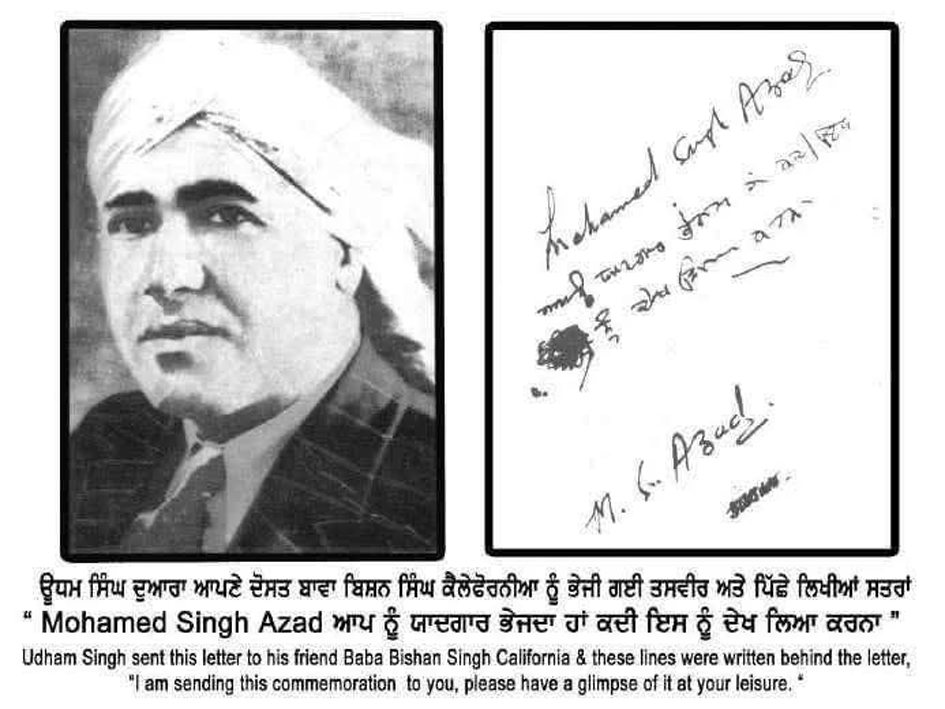 Mohamed Singh Azad.
ਆਪਨੂੰ ਯਾਦਗਾਰ ਭੇਜਦਾ
ਨੂੰ ਦੇਖ ਲਿਆ ਕਰਨਾ
M. S. Azad.
ਊਧਮ ਸਿੰਘ ਦੁਆਰਾ ਆਪਣੇ ਦੋਸਤ ਬਾਵਾ ਬਿਸ਼ਨ ਸਿੰਘ ਕੈਲੇਫੋਰਨੀਆ ਨੂੰ ਭੇਜੀ ਗਈ ਤਸਵੀਰ ਅਤੇ ਪਿੱਛੇ ਲਿਖੀਆਂ ਸਤਰਾਂ
“ Mohamed Singh Azad ਆਪ ਨੂੰ ਯਾਦਗਾਰ ਭੇਜਦਾ ਹਾਂ ਕਦੀ ਇਸ ਨੂੰ ਦੇਖ ਲਿਆ ਕਰਨਾ ”
Udham Singh sent this letter to his friend Baba Bishan Singh California & these lines were written behind the letter,
"I am sending this commemoration to you, please have a glimpse of it at your leisure. “